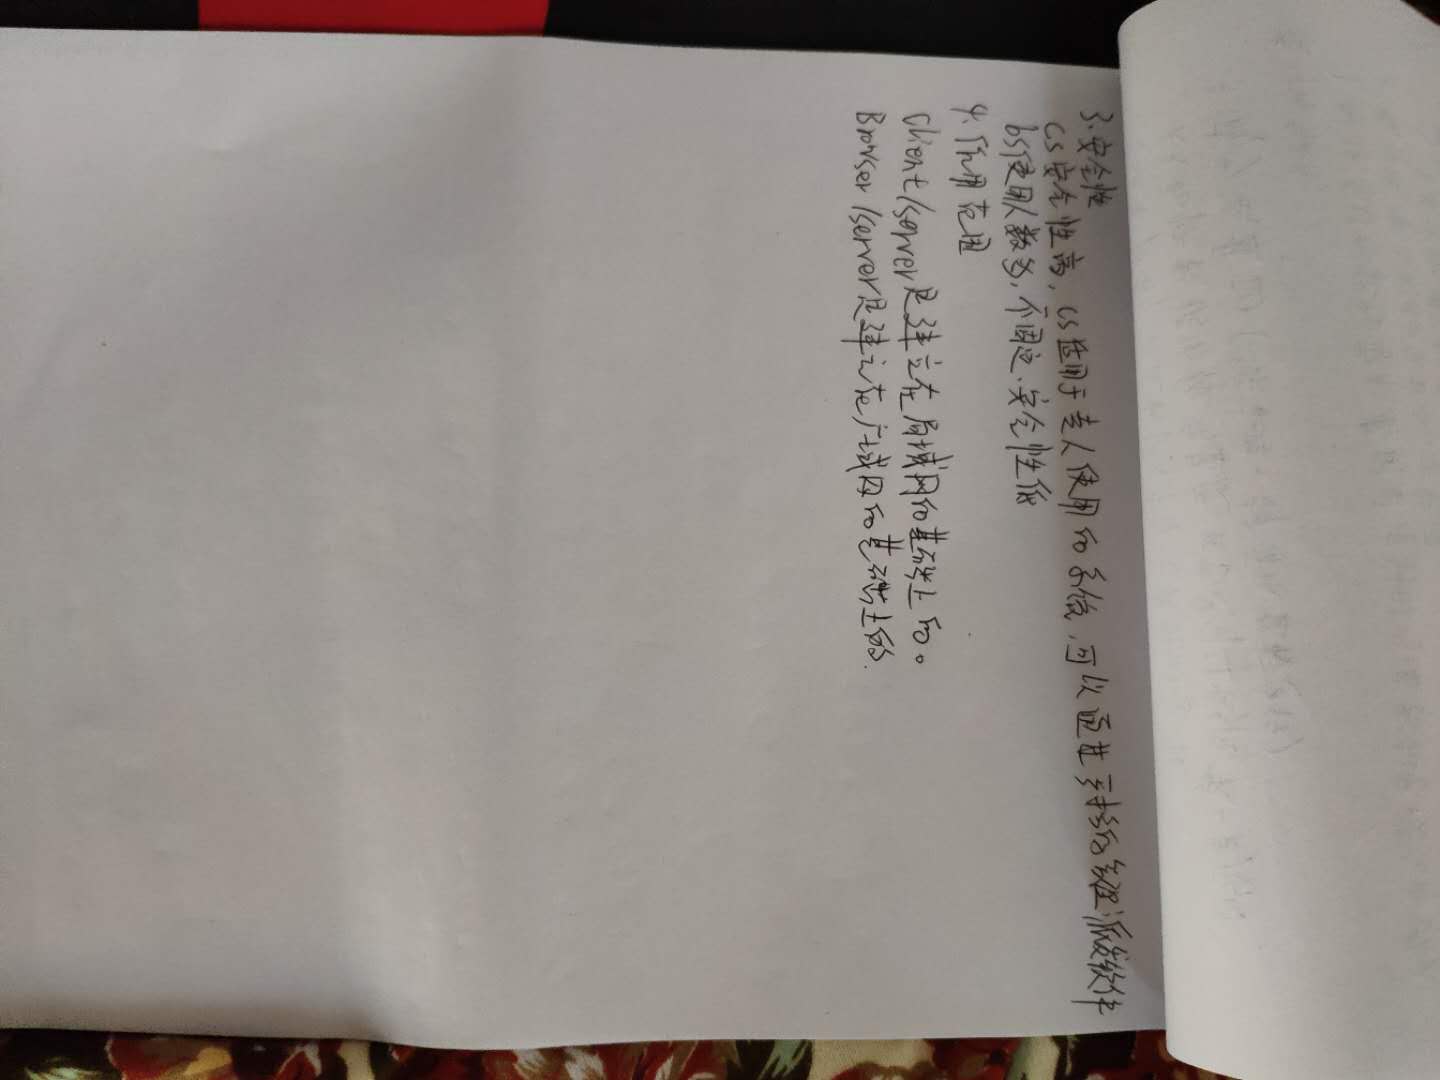 3、安全性
CS安全性高，CS适用于专人使用的系统，可以通过严格的管理派发软件
bS使用人数多，不固定，安全性低
4、作用范围
Client/server是建立在局域网的基础上的。
Browser/server是建立在广域网的基础上的.